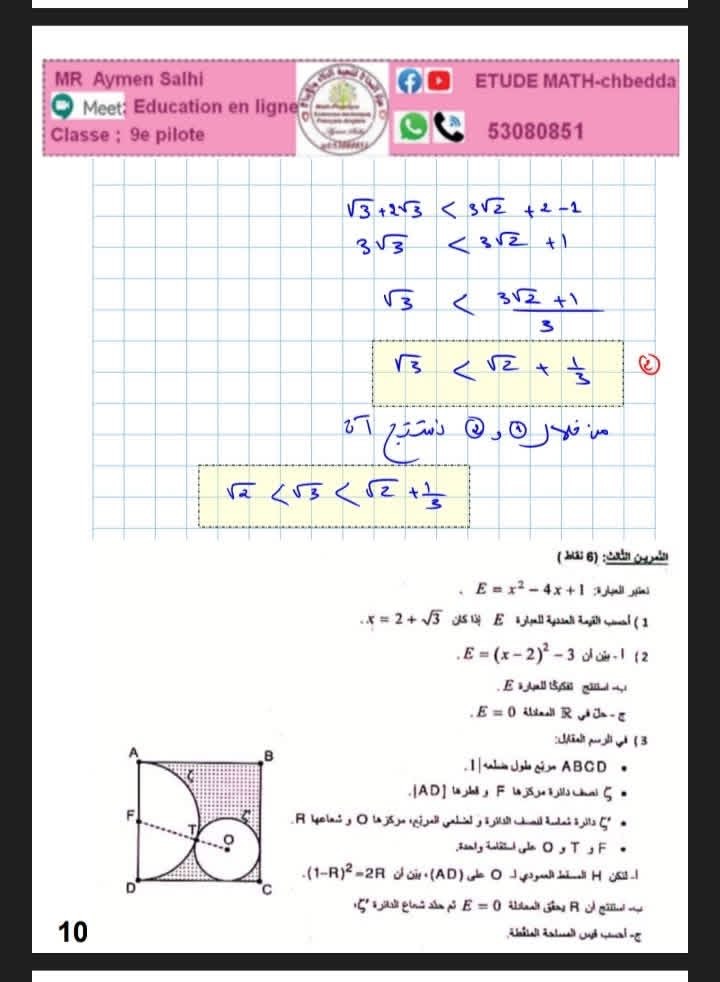 MR Aymen Salhi
Meet: Education en ligne
Classe : 9e pilote
ETUDE MATH-chbedda
53080851
√3 +2√3 < 3√2 +2-1
3√3 < 3√2 +1
√3 < (3√2 +1)/3
√3 < √2 + 1/3 ②
من خلال ① و ② نستنتج أن
√2 < √3 < √2 + 1/3
التمرين الثالث: (6 نقاط)
نعتبر العبارة: E = x² − 4x + 1 .
1) أحسب القيمة العددية للعبارة E إذا كان x = 2 + √3.
2) أ- بيّن أن E = (x − 2)² − 3.
ب- استنتج تفكيكا للعبارة E.
ج- حلّ في ℝ المعادلة E = 0.
3) في الرسم المقابل:
• ABCD مربّع طول ضلعه 1.
• ζ نصف دائرة مركزها F و قطرها [AD].
• ζ' دائرة مماسة لنصف الدائرة و لضلعي المربّع، مركزها O و شعاعها R.
• F و T و O على استقامة واحدة.
أ- لتكن H المسقط العمودي لـ O على (AD)، بيّن أن (1−R)²=2R.
ب- استنتج أن R يحقق المعادلة E = 0 ثم حدّد شعاع الدائرة ζ'.
ج- أحسب قيس المساحة المنقّطة.
A
B
ζ
F
T
O
ζ'
D
C
10